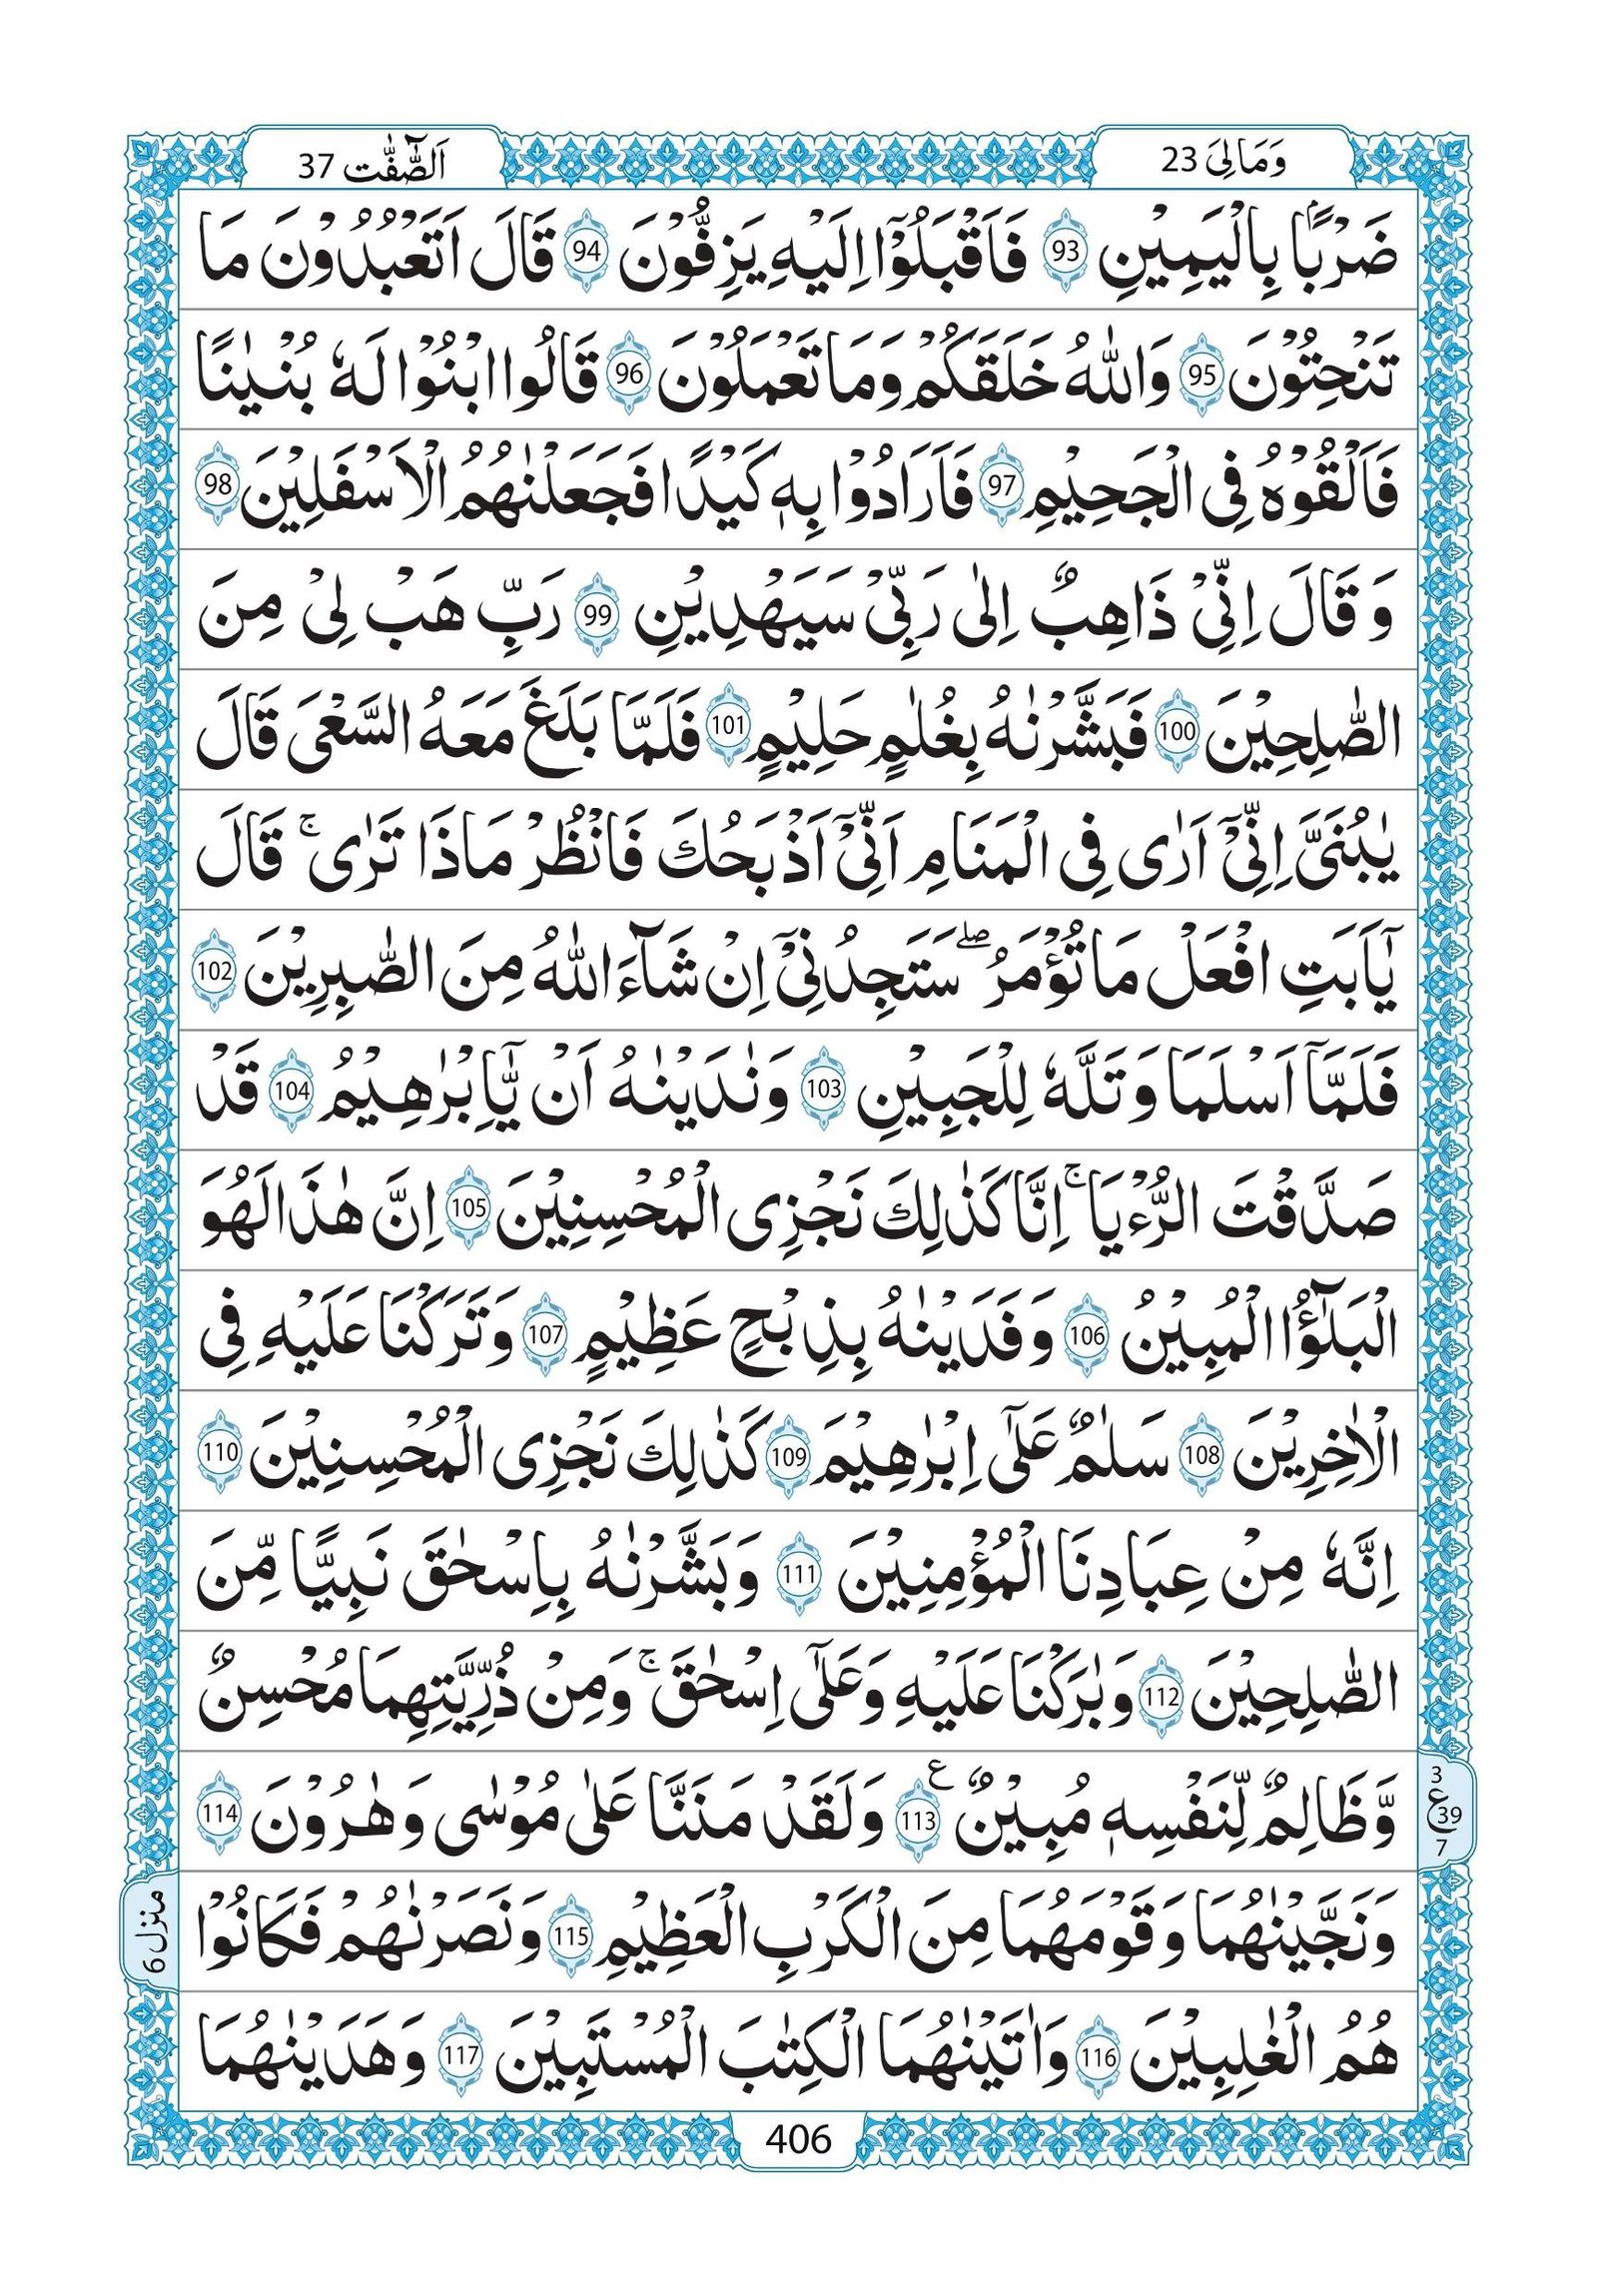 اَلصّٰٓفّٰت 37
وَمَالِیَ 23
ضَرْبًۢا بِالْیَمِیْنِ 93 فَاَقْبَلُوْۤا اِلَیْهِ یَزِفُّوْنَ 94 قَالَ اَتَعْبُدُوْنَ مَا
تَنْحِتُوْنَ 95 وَاللّٰهُ خَلَقَكُمْ وَمَا تَعْمَلُوْنَ 96 قَالُوا ابْنُوْا لَهٗ بُنْیٰنًا
فَاَلْقُوْهُ فِی الْجَحِیْمِ 97 فَاَرَادُوْا بِهٖ كَیْدًا فَجَعَلْنٰهُمُ الْاَسْفَلِیْنَ 98
وَقَالَ اِنِّیْ ذَاهِبٌ اِلٰی رَبِّیْ سَیَهْدِیْنِ 99 رَبِّ هَبْ لِیْ مِنَ
الصّٰلِحِیْنَ 100 فَبَشَّرْنٰهُ بِغُلٰمٍ حَلِیْمٍ 101 فَلَمَّا بَلَغَ مَعَهُ السَّعْیَ قَالَ
یٰبُنَیَّ اِنِّیْۤ اَرٰی فِی الْمَنَامِ اَنِّیْۤ اَذْبَحُكَ فَانْظُرْ مَاذَا تَرٰی ۚ قَالَ
یٰۤاَبَتِ افْعَلْ مَا تُؤْمَرُ ۖ سَتَجِدُنِیْۤ اِنْ شَآءَ اللّٰهُ مِنَ الصّٰبِرِیْنَ 102
فَلَمَّاۤ اَسْلَمَا وَتَلَّهٗ لِلْجَبِیْنِ 103 وَنٰدَیْنٰهُ اَنْ یّٰۤاِبْرٰهِیْمُ 104 قَدْ
صَدَّقْتَ الرُّءْیَا ۚ اِنَّا كَذٰلِكَ نَجْزِی الْمُحْسِنِیْنَ 105 اِنَّ هٰذَا لَهُوَ
الْبَلٰٓؤُا الْمُبِیْنُ 106 وَفَدَیْنٰهُ بِذِبْحٍ عَظِیْمٍ 107 وَتَرَكْنَا عَلَیْهِ فِی
الْاٰخِرِیْنَ 108 سَلٰمٌ عَلٰۤی اِبْرٰهِیْمَ 109 كَذٰلِكَ نَجْزِی الْمُحْسِنِیْنَ 110
اِنَّهٗ مِنْ عِبَادِنَا الْمُؤْمِنِیْنَ 111 وَبَشَّرْنٰهُ بِاِسْحٰقَ نَبِیًّا مِّنَ
الصّٰلِحِیْنَ 112 وَبٰرَكْنَا عَلَیْهِ وَعَلٰۤی اِسْحٰقَ ۚ وَمِنْ ذُرِّیَّتِهِمَا مُحْسِنٌ
وَّظَالِمٌ لِّنَفْسِهٖ مُبِیْنٌ ع 113 وَلَقَدْ مَنَنَّا عَلٰی مُوْسٰی وَهٰرُوْنَ 114
3
ع 39
7
وَنَجَّیْنٰهُمَا وَقَوْمَهُمَا مِنَ الْكَرْبِ الْعَظِیْمِ 115 وَنَصَرْنٰهُمْ فَكَانُوْا
منزل 6
هُمُ الْغٰلِبِیْنَ 116 وَاٰتَیْنٰهُمَا الْكِتٰبَ الْمُسْتَبِیْنَ 117 وَهَدَیْنٰهُمَا
406